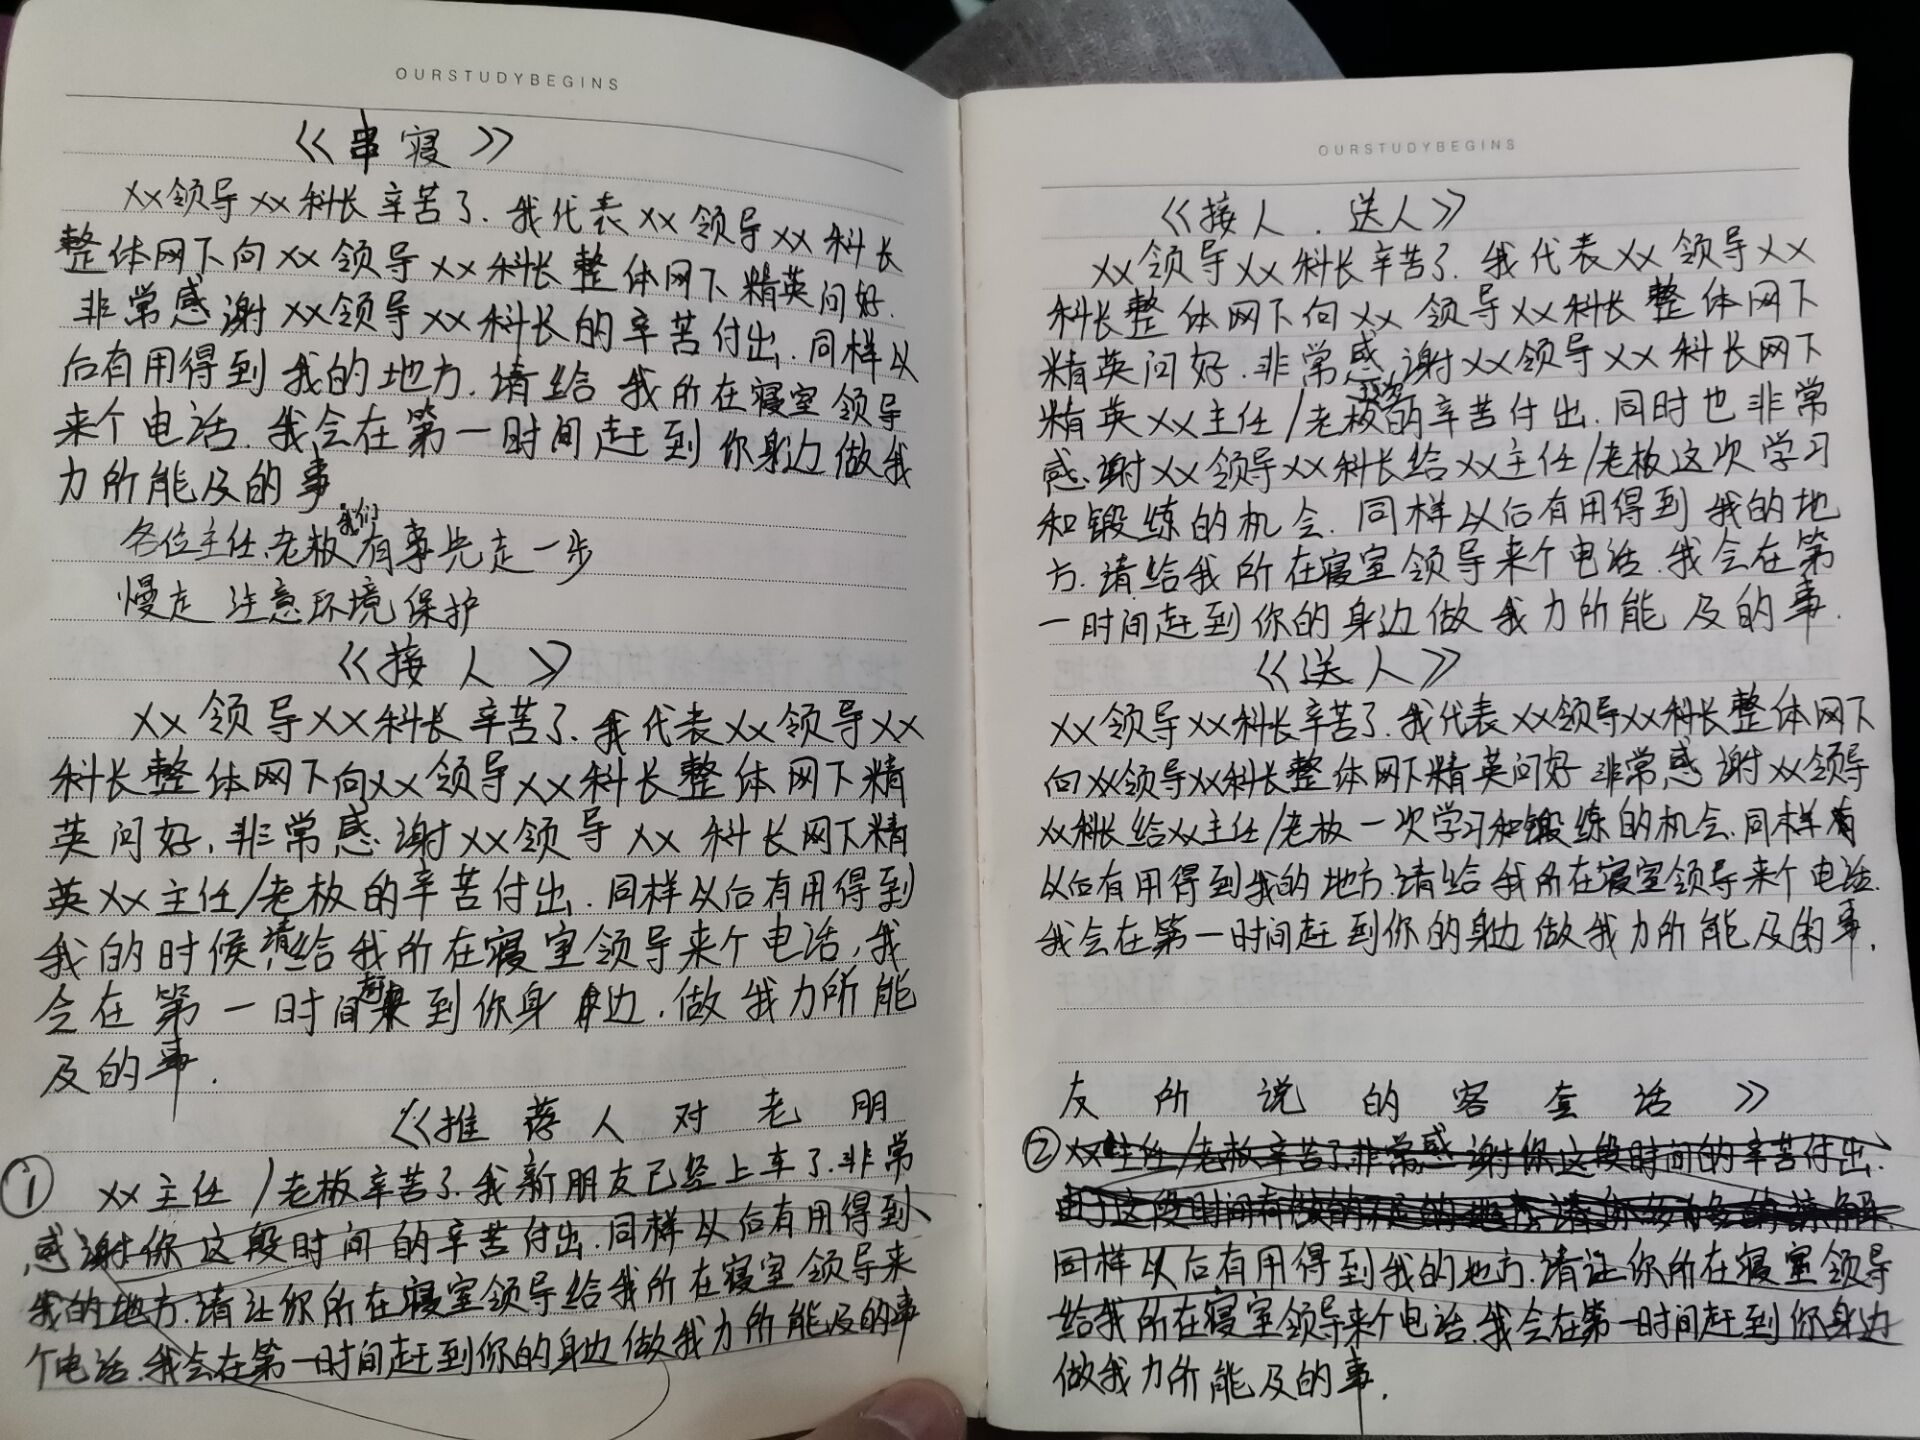 OURSTUDYBEGINS
《串寝》
XX领导XX科长辛苦了.我代表XX领导XX科长
整体网下向XX领导XX科长整体网下精英问好.
非常感谢XX领导XX科长的辛苦付出.同样以
后有用得到我的地方.请给我所在寝室领导
来个电话.我会在第一时间赶到你身边做我
力所能及的事
各位主任、老板我们有事先走一步
慢走 注意环境保护
《接人》
XX领导XX科长辛苦了.我代表XX领导XX
科长整体网下向XX领导XX科长整体网下精
英问好,非常感谢XX领导XX科长网下精
英XX主任/老板的辛苦付出.同样以后有用得到
我的时候,请给我所在寝室领导来个电话,我
会在第一时间赶到你身边.做我力所能
及的事.
《推荐人对老朋
① XX主任/老板辛苦了.我新朋友已经上车了.非常
感谢你这段时间的辛苦付出.同样以后有用得到
我的地方.请让你所在寝室领导给我所在寝室领导来
个电话.我会在第一时间赶到你的身边做我力所能及的事
OURSTUDYBEGINS
《接人.送人》
XX领导XX科长辛苦了.我代表XX领导XX
科长整体网下向XX领导XX科长整体网下
精英问好.非常感谢XX领导XX科长网下
精英XX主任/老板的辛苦付出.同时也非常
感谢XX领导XX科长给XX主任/老板这次学习
和锻练的机会.同样以后有用得到我的地
方.请给我所在寝室领导来个电话.我会在第
一时间赶到你的身边做我力所能及的事.
《送人》
XX领导XX科长辛苦了.我代表XX领导XX科长整体网下
向XX领导XX科长整体网下精英问好非常感谢XX领导
XX科长给XX主任/老板一次学习和锻练的机会.同样
以后有用得到我的地方.请给我所在寝室领导来个电话.
我会在第一时间赶到你的身边做我力所能及的事.
友所说的客套话》
② XX主任/老板辛苦了.非常感谢你这段时间的辛苦付出.
由于这段时间有做的不足的地方请你多多的谅解.
同样以后有用得到我的地方.请让你所在寝室领导
给我所在寝室领导来个电话.我会在第一时间赶到你身边
做我力所能及的事.